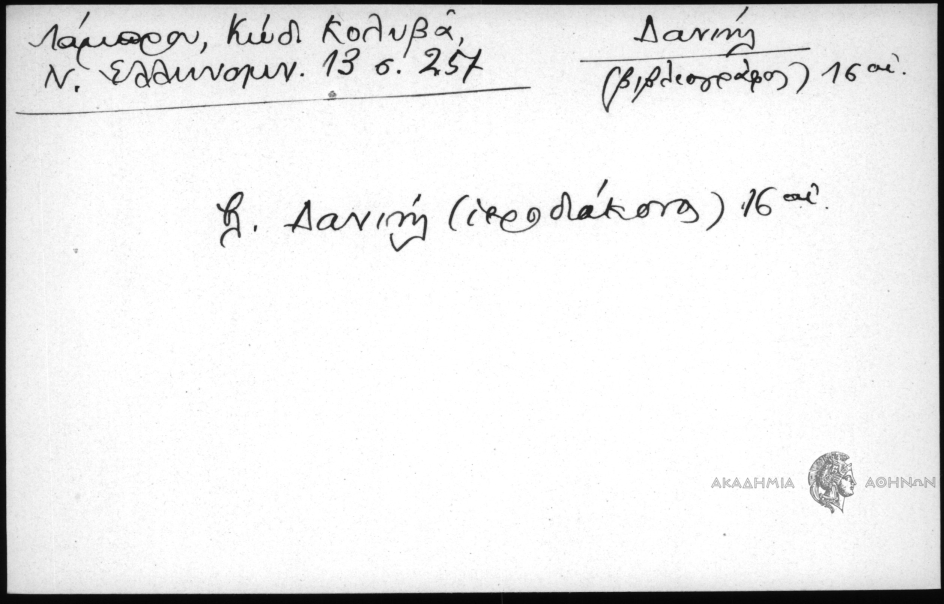 Λάμπρου, Κώδ. Κολυβᾶ,
Ν. Ἑλληνομν. 13 σ. 257
Δανιήλ
(βιβλιογράφος) 16 αἰ.
Δανιήλ (ἱεροδιάκονος) 16 αἰ.
ΑΚΑΔΗΜΙΑ ΑΘΗΝΩΝ